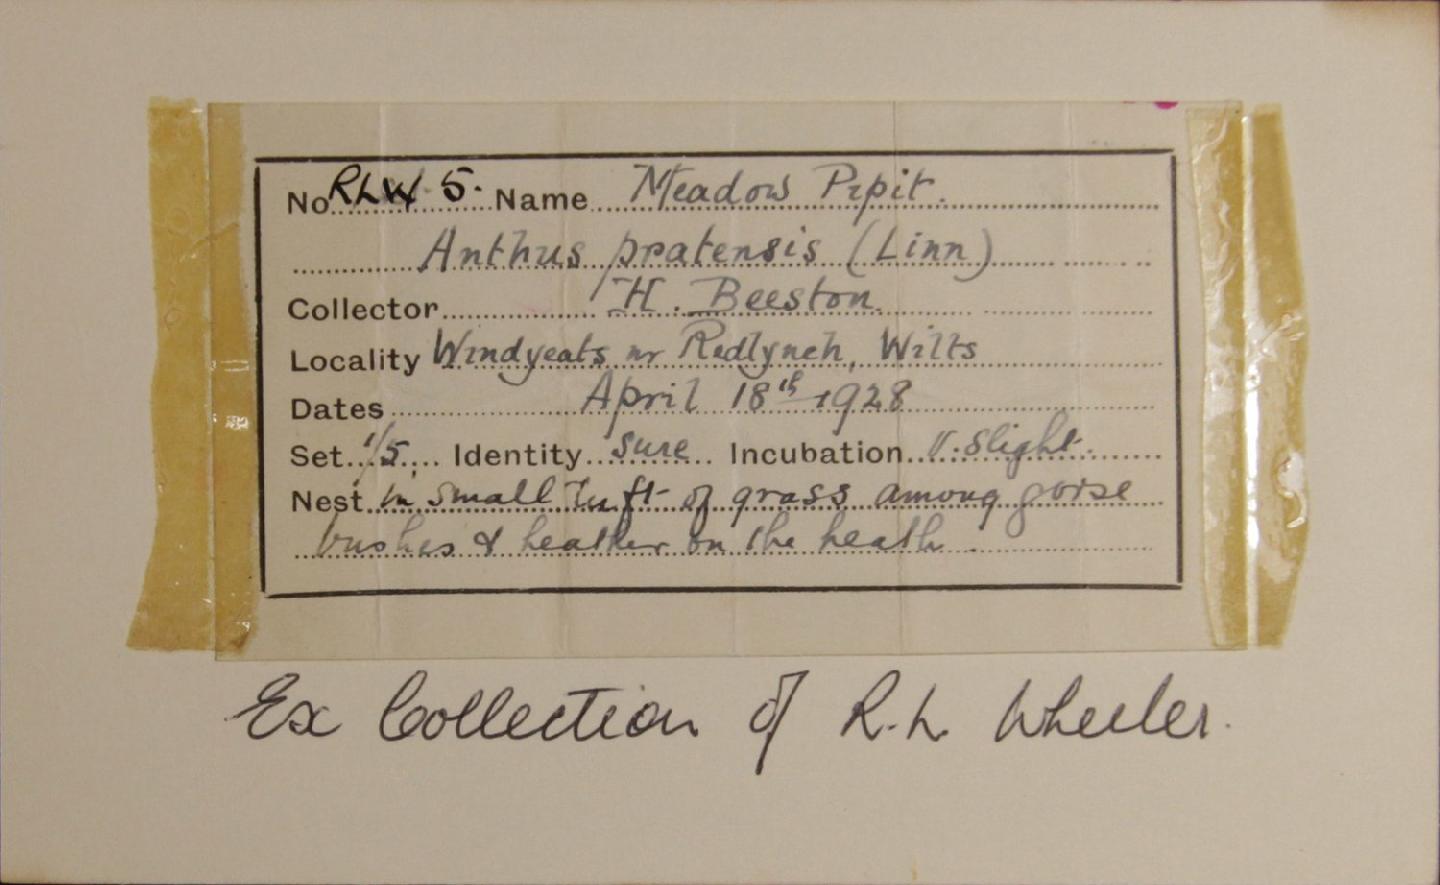 No RLW 5. Name Meadow Pipit.
Anthus pratensis (Linn)
Collector H. Beeston.
Locality Windyeats nr Redlynch, Wilts
Dates April 18th 1928
Set 1/5. Identity sure Incubation v. slight.
Nest in small tuft of grass among gorse
bushes & heather on the heath.
Ex Collection of R.L. Wheeler.